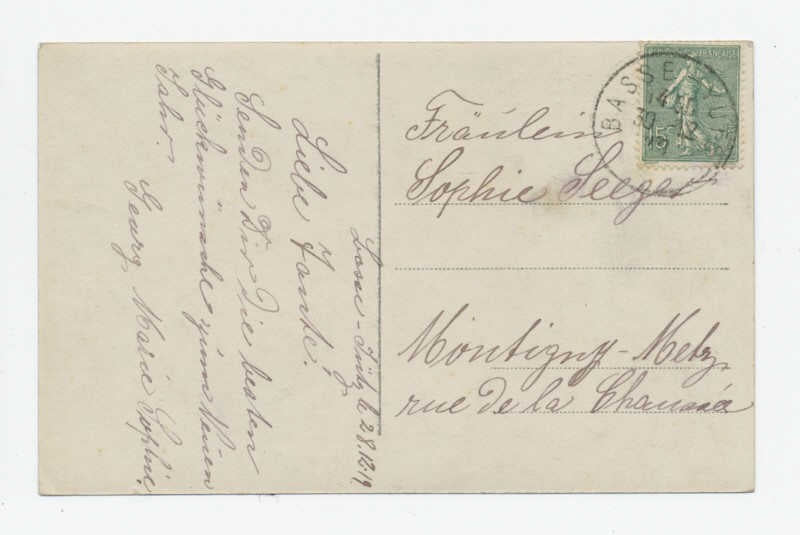 Basse-Jütz, le 28.12.19
Liebe Tante!
Senden Dir die besten
Glückwünsche zum Neuen
Jahr.
Georg Marie Sophie
Fräulein
Sophie Seeger
Montigny-Metz
rue de la Chaussée
FRANÇAISE
BASSE YUTZ
14
30 12
19
15